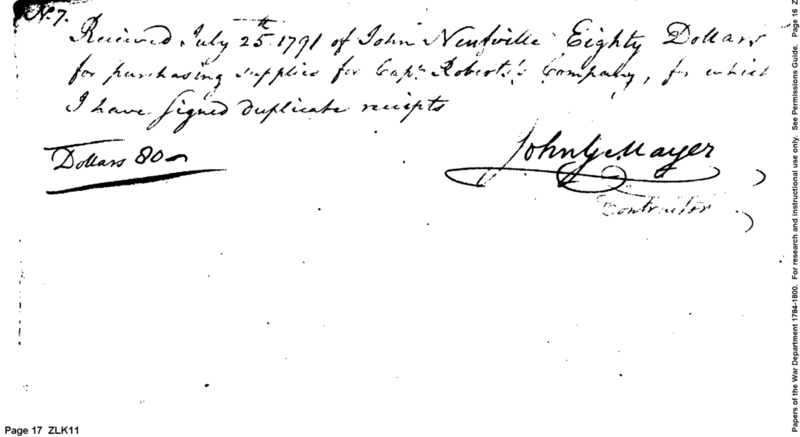 No. 7.
Received July 25th 1791 of John Neufville Eighty Dollars
for purchasing supplies for Capn. Roberts's Company, for which
I have signed duplicate receipts
Dollars 80
John G Mayer
Contractor
Page 17 ZLK11
Papers of the War Department 1784-1800. For research and instructional use only. See Permissions Guide. Page 16 Z